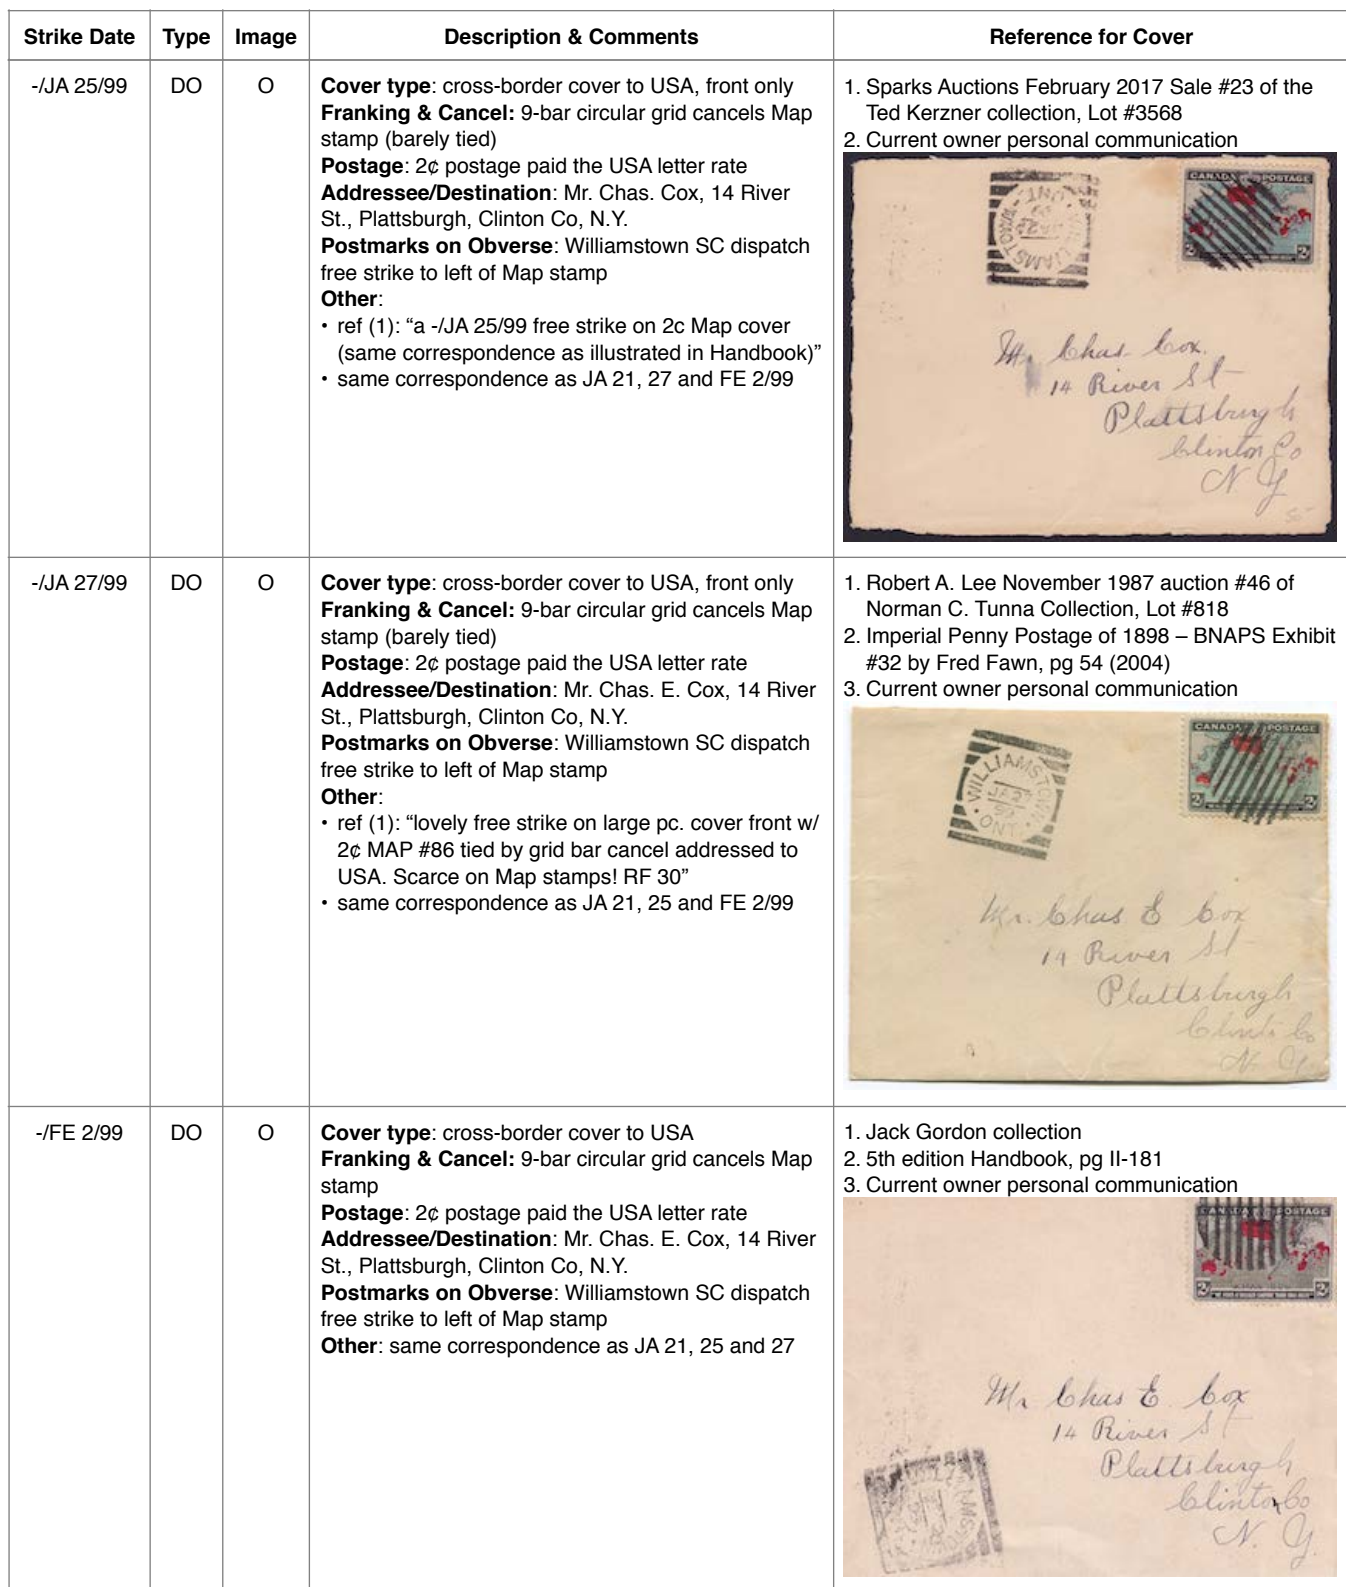 Strike Date Type Image Description & Comments Reference for Cover
-/JA 25/99 DO O
Cover type: cross-border cover to USA, front only
Franking & Cancel: 9-bar circular grid cancels Map
stamp (barely tied)
Postage: 2¢ postage paid the USA letter rate
Addressee/Destination: Mr. Chas. Cox, 14 River
St., Plattsburgh, Clinton Co, N.Y.
Postmarks on Obverse: Williamstown SC dispatch
free strike to left of Map stamp
Other:
• ref (1): “a -/JA 25/99 free strike on 2c Map cover
(same correspondence as illustrated in Handbook)”
• same correspondence as JA 21, 27 and FE 2/99
1. Sparks Auctions February 2017 Sale #23 of the
Ted Kerzner collection, Lot #3568
2. Current owner personal communication
CANADA POSTAGE
2 2
WILLIAMSTOWN
ONT
Mr. Chas. Cox.
14 River St
Plattsburgh
Clinton Co
N Y
-/JA 27/99 DO O
Cover type: cross-border cover to USA, front only
Franking & Cancel: 9-bar circular grid cancels Map
stamp (barely tied)
Postage: 2¢ postage paid the USA letter rate
Addressee/Destination: Mr. Chas. E. Cox, 14 River
St., Plattsburgh, Clinton Co, N.Y.
Postmarks on Obverse: Williamstown SC dispatch
free strike to left of Map stamp
Other:
• ref (1): “lovely free strike on large pc. cover front w/
2¢ MAP #86 tied by grid bar cancel addressed to
USA. Scarce on Map stamps! RF 30”
• same correspondence as JA 21, 25 and FE 2/99
1. Robert A. Lee November 1987 auction #46 of
Norman C. Tunna Collection, Lot #818
2. Imperial Penny Postage of 1898 – BNAPS Exhibit
#32 by Fred Fawn, pg 54 (2004)
3. Current owner personal communication
CANADA POSTAGE
2 2
WILLIAMSTOWN
JA 27
ONT
Mr. Chas E Cox
14 River St
Plattsburgh
Co
N Y
-/FE 2/99 DO O
Cover type: cross-border cover to USA
Franking & Cancel: 9-bar circular grid cancels Map
stamp
Postage: 2¢ postage paid the USA letter rate
Addressee/Destination: Mr. Chas. E. Cox, 14 River
St., Plattsburgh, Clinton Co, N.Y.
Postmarks on Obverse: Williamstown SC dispatch
free strike to left of Map stamp
Other: same correspondence as JA 21, 25 and 27
1. Jack Gordon collection
2. 5th edition Handbook, pg II-181
3. Current owner personal communication
CANADA POSTAGE
2 2
Mr Chas E Cox
14 River St
Plattsburgh
Clinton Co
N. Y.